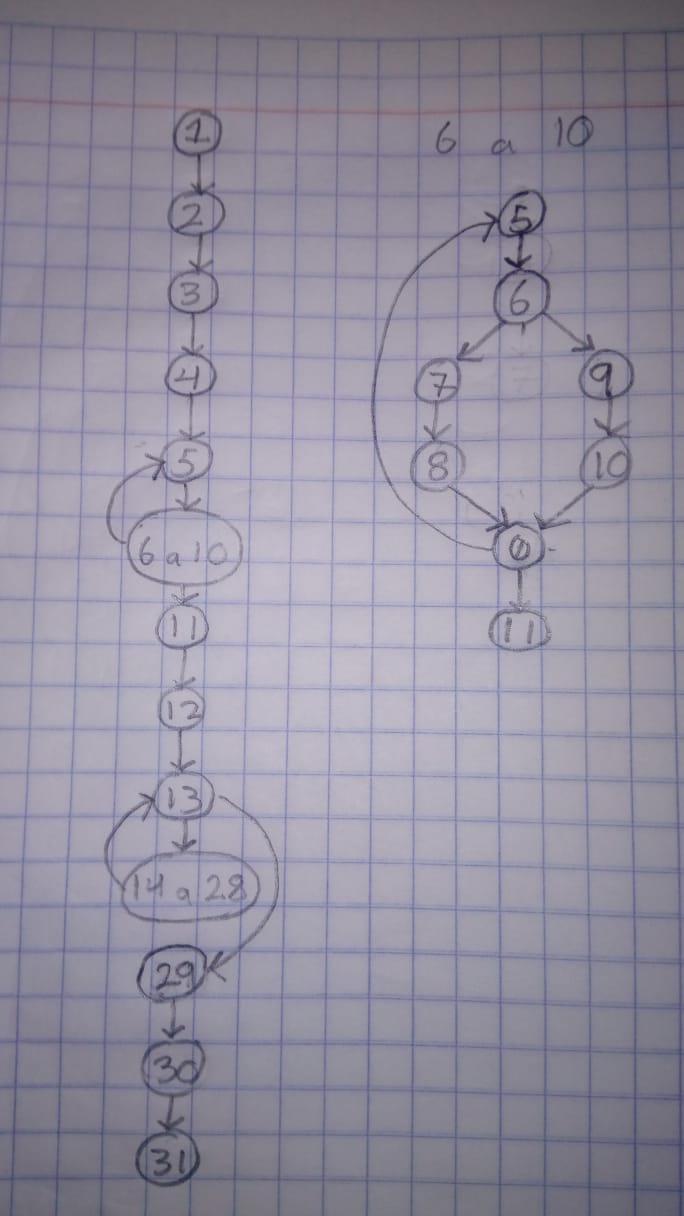 1
2
3
4
5
6 a 10
11
12
13
14 a 28
29
30
31
6 a 10
5
6
7 9
8 10
0
11